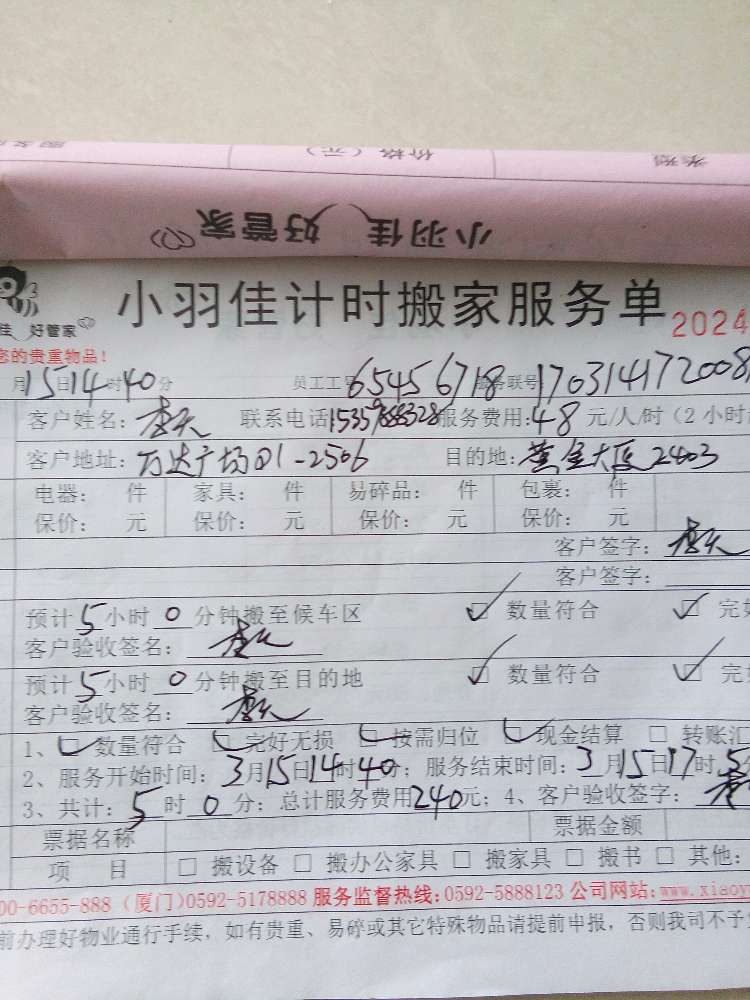 价格（元）
类别
小羽佳 好管家
小羽佳计时搬家服务单
2024
佳 好管家
您的贵重物品！
月15日14时40分 员工工号65456718 服务联号
客户姓名：李天 联系电话 服务费用：48元/人/时（2小时
客户地址：万达广场D1-2506 目的地：黄金大厦2403
电器： 件 家具： 件 易碎品： 件 包裹： 件
保价： 元 保价： 元 保价： 元 保价： 元
客户签字：李天
客户签字：
预计5小时0分钟搬至候车区 数量符合 完好
客户验收签名：李天
预计5小时0分钟搬至目的地 数量符合 完好
客户验收签名：李天
1、数量符合 完好无损 按需归位 现金结算 转账汇
2、服务开始时间：3月15日14时40分；服务结束时间：3月15日17时
3、共计：5时0分；总计服务费用240元；4、客户验收签字：李
票据名称 票据金额
项 目 搬设备 搬办公家具 搬家具 搬书 其他：
00-6655-888（厦门）0592-5178888 服务监督热线：0592-5888123 公司网站：www.xiaoy
前办理好物业通行手续，如有贵重、易碎或其它特殊物品请提前申报，否则我司不予